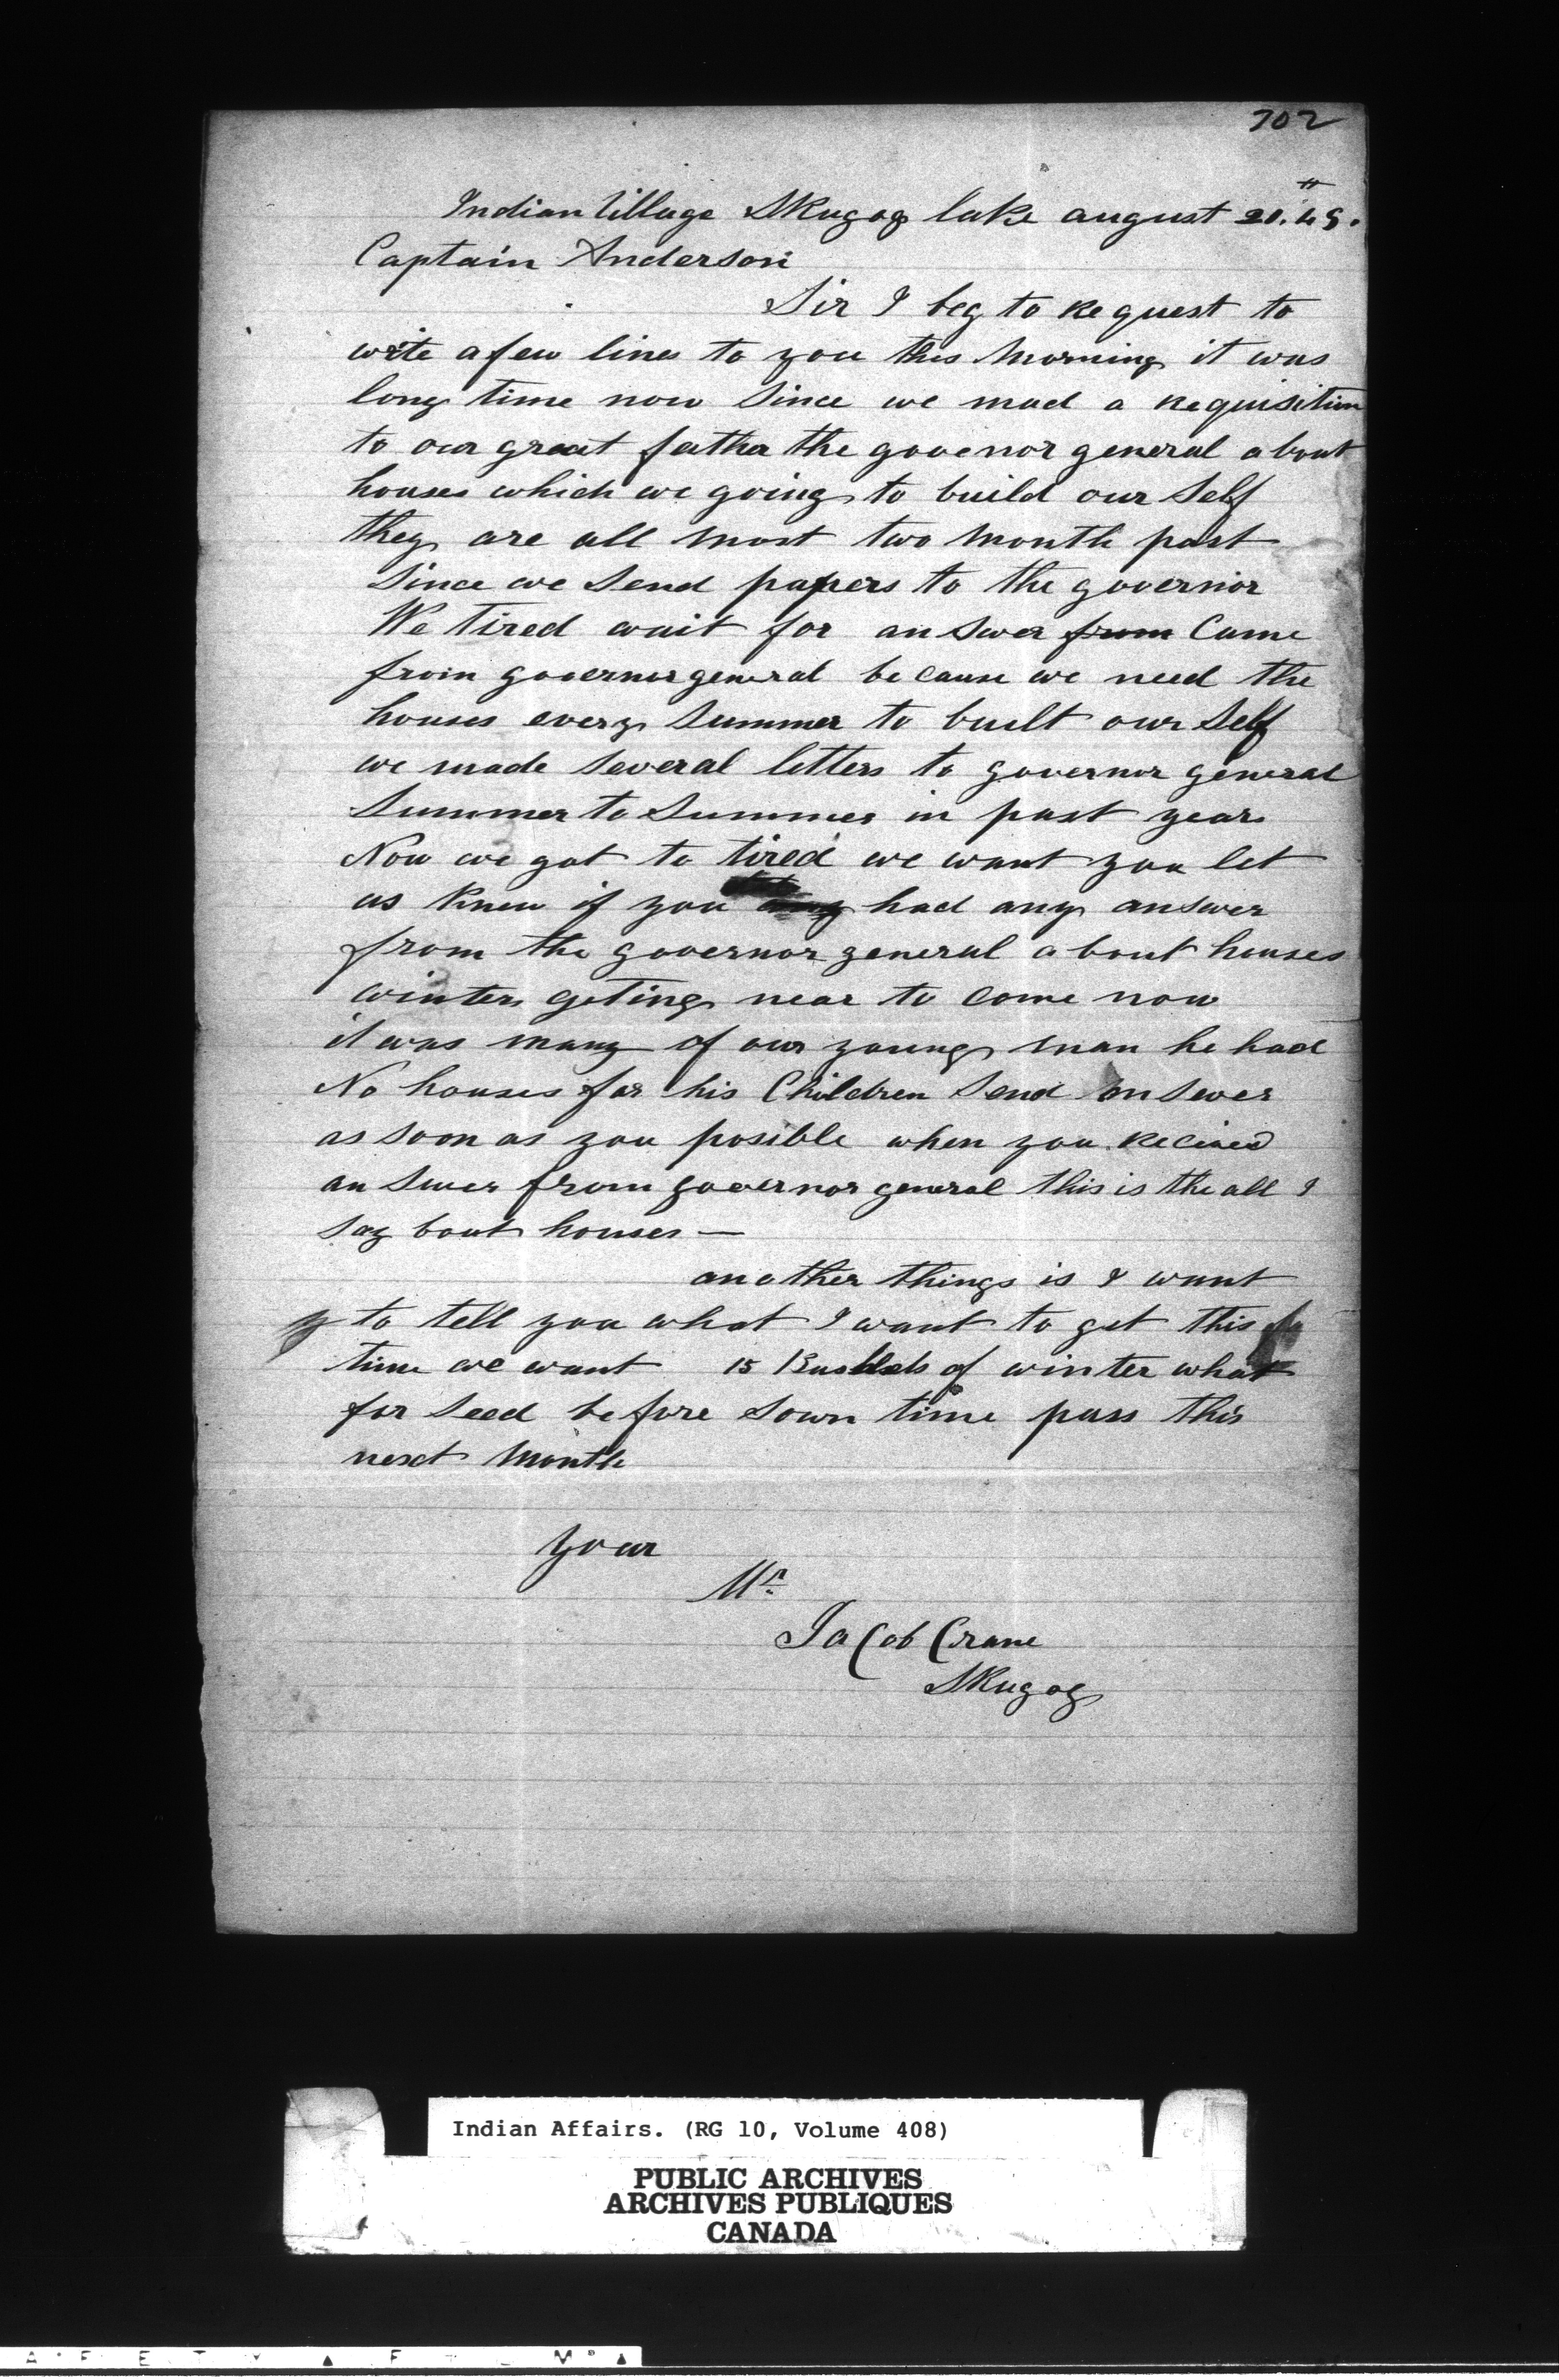 702
Indian Village Skugog lake august 20.th 49.
Captain Anderson
Sir I beg to Request to
write a few lines to you this Morning it was
long time now Since we mad a Requisition
to our great father the govenor general about
houses which we going to build our Self
they are all most two Month past
Since we Send papers to the governor
We Tired wait for an Swer from Came
from governor general be cause we need the
houses every Summer to built our Self
we made Several letters to governor general
Summer to Summer in past years
Now we got to tired we want you let
us know if you any had any answer
from the governor general a bout houses
winters geting near to come now
it was many of our young man he had
No houses for his Children Send an Swer
as soon as you posible when you Recived
an Swer from governor general this is the all I
Say bout houses —
another things is I want
to tell you what I want to get this
time we want 15 of winter what
for Seed before Sown time pass this
next Month
Your
Mr.
Jacob Crane
Skugog
Indian Affairs. (RG 10, Volume 408)
PUBLIC ARCHIVES
ARCHIVES PUBLIQUES
CANADA